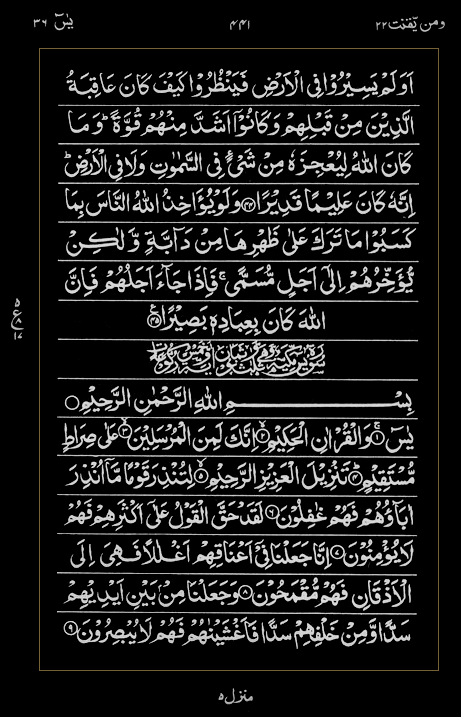 ومن يّقنت ٢٢
٤٤١
يٰسٓ ٣٦
اَوَلَمْ يَسِيْرُوْا فِى الْاَرْضِ فَيَنْظُرُوْا كَيْفَ كَانَ عَاقِبَةُ
الَّذِيْنَ مِنْ قَبْلِهِمْ وَكَانُوْۤا اَشَدَّ مِنْهُمْ قُوَّةً ؕ وَمَا
كَانَ اللّٰهُ لِيُعْجِزَهٗ مِنْ شَىْءٍ فِى السَّمٰوٰتِ وَلَا فِى الْاَرْضِ ؕ
اِنَّهٗ كَانَ عَلِيْمًا قَدِيْرًا ﴿٤٤﴾ وَلَوْ يُؤَاخِذُ اللّٰهُ النَّاسَ بِمَا
كَسَبُوْا مَا تَرَكَ عَلٰى ظَهْرِهَا مِنْ دَآبَّةٍ وَّلٰكِنْ
يُّؤَخِّرُهُمْ اِلٰٓى اَجَلٍ مُّسَمًّى ۚ فَاِذَا جَآءَ اَجَلُهُمْ فَاِنَّ
اللّٰهَ كَانَ بِعِبَادِهٖ بَصِيْرًا ﴿٤٥﴾
٥ ع ٨ ١٧
سُوْرَةُ يٰسٓ مَكِّيَّةٌ
بِسْمِ اللّٰهِ الرَّحْمٰنِ الرَّحِيْمِ
يٰسٓ ﴿١﴾ وَالْقُرْاٰنِ الْحَكِيْمِ ﴿٢﴾ اِنَّكَ لَمِنَ الْمُرْسَلِيْنَ ﴿٣﴾ عَلٰى صِرَاطٍ
مُّسْتَقِيْمٍ ﴿٤﴾ تَنْزِيْلَ الْعَزِيْزِ الرَّحِيْمِ ﴿٥﴾ لِتُنْذِرَ قَوْمًا مَّاۤ اُنْذِرَ
اٰبَآؤُهُمْ فَهُمْ غٰفِلُوْنَ ﴿٦﴾ لَقَدْ حَقَّ الْقَوْلُ عَلٰٓى اَكْثَرِهِمْ فَهُمْ
لَا يُؤْمِنُوْنَ ﴿٧﴾ اِنَّا جَعَلْنَا فِىْۤ اَعْنَاقِهِمْ اَغْلٰلًا فَهِىَ اِلَى
الْاَذْقَانِ فَهُمْ مُّقْمَحُوْنَ ﴿٨﴾ وَجَعَلْنَا مِنْۢ بَيْنِ اَيْدِيْهِمْ
سَدًّا وَّمِنْ خَلْفِهِمْ سَدًّا فَاَغْشَيْنٰهُمْ فَهُمْ لَا يُبْصِرُوْنَ ﴿٩﴾
منزل ٥